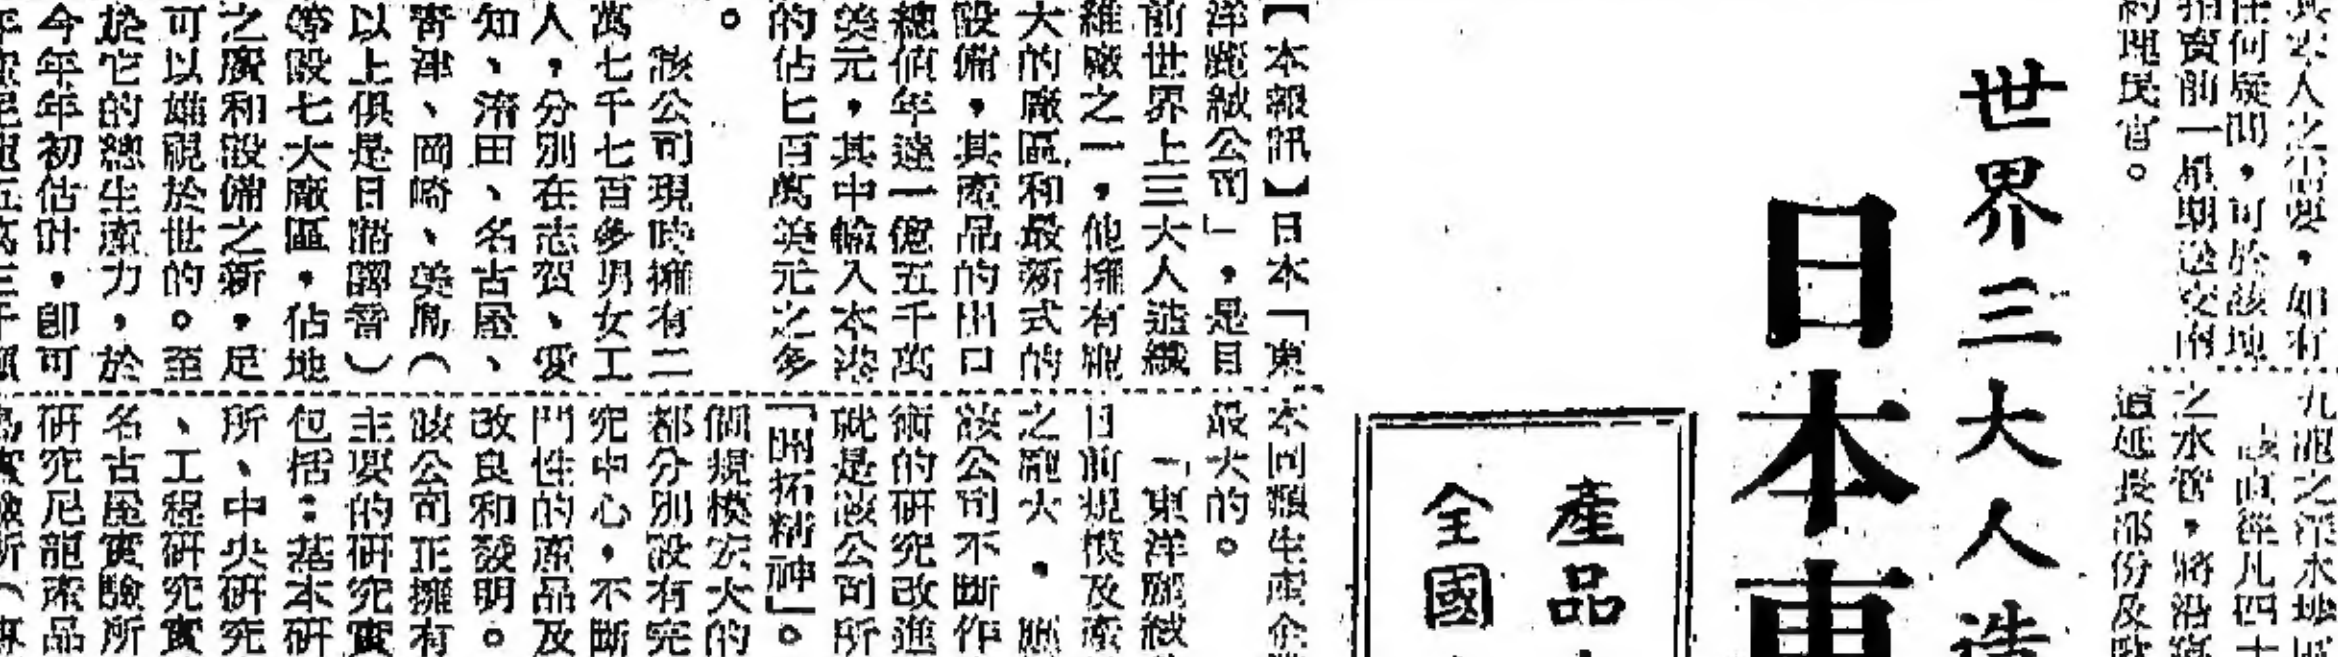 其本人之不要,如有
任何疑問,可於該地
拍賣前一星期送交兩
約理民官。
九龍之深水埗
該直徑凡四十
之水管,將沿
道延長部份及
世界三大人造
日本東
產品
全國
【本報訊】日本「東
洋麗絨公司」,是目
前世界上三大人造纖
維廠之一,他擁有龐
大的廠區和最新式的
設備,其產品的出口
總值年達一億五千萬
美元,其中輸入本港
的佔七百萬美元之多
。
該公司現時擁有二
萬七千七百多男女工
人,分別在志賀、愛
知、濱田、名古屋、
寄津、岡崎、美島(
以上俱是日諧譯音)
等設七大廠區,佔地
之廣和設備之新,足
可以雄視於世的。至
於它的總生產力,於
今年年初估計,即可
年產尼龍五萬三千噸
本同類生產企
最大的。
「東洋麗絨
目前規模及產
之龐大,
該公司不斷作
術的研究改進
就是該公司所
「開拓精神」。
個規模宏大的
都分別設有完
究中心,不斷
門性的產品及
改良和發明。
該公司正擁有
主要的研究實
包括:基本研
所、中央研究
、工程研究實
名古屋實驗所
研究尼龍產品